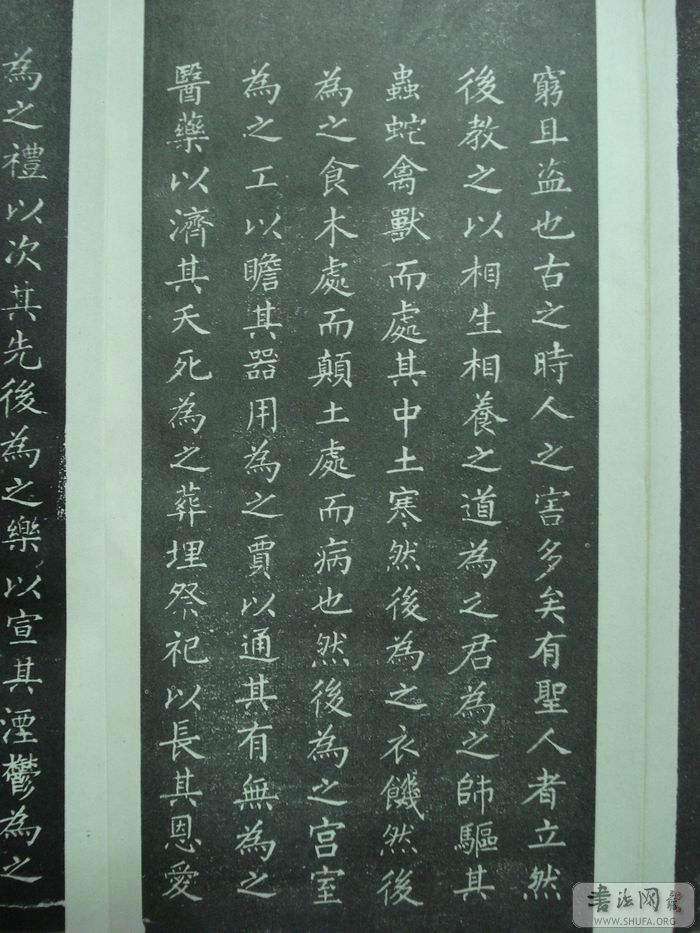 窮且盜也古之時人之害多矣有聖人者立然
後教之以相生相養之道為之君為之師驅其
蟲蛇禽獸而處其中土寒然後為之衣饑然後
為之食木處而顛土處而病也然後為之宮室
為之工以瞻其器用為之賈以通其有無為之
醫藥以濟其夭死為之葬埋祭祀以長其恩愛
為之禮以次其先後為之樂以宣其湮鬱為之
書法网
WWW.SHUFA.ORG